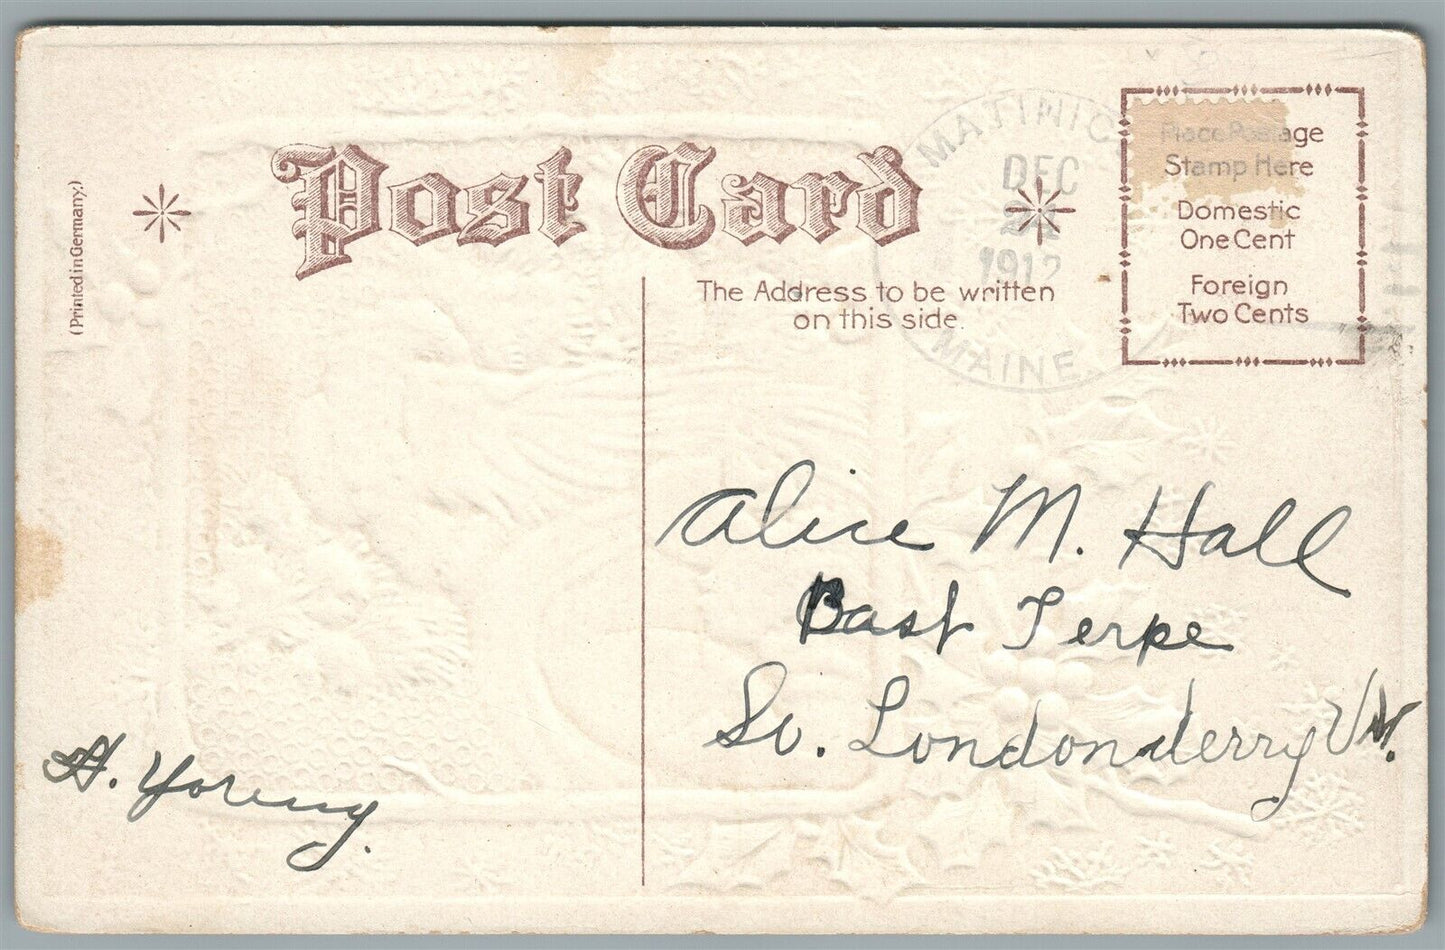 (Printed in Germany.)
Post Card
MATINIC
DEC
1912
MAINE
Place Postage
Stamp Here
Domestic
One Cent
Foreign
Two Cents
The Address to be written
on this side.
Alice M. Hall
Bast Terpe
So. Londonderry Vt.
H. Young.